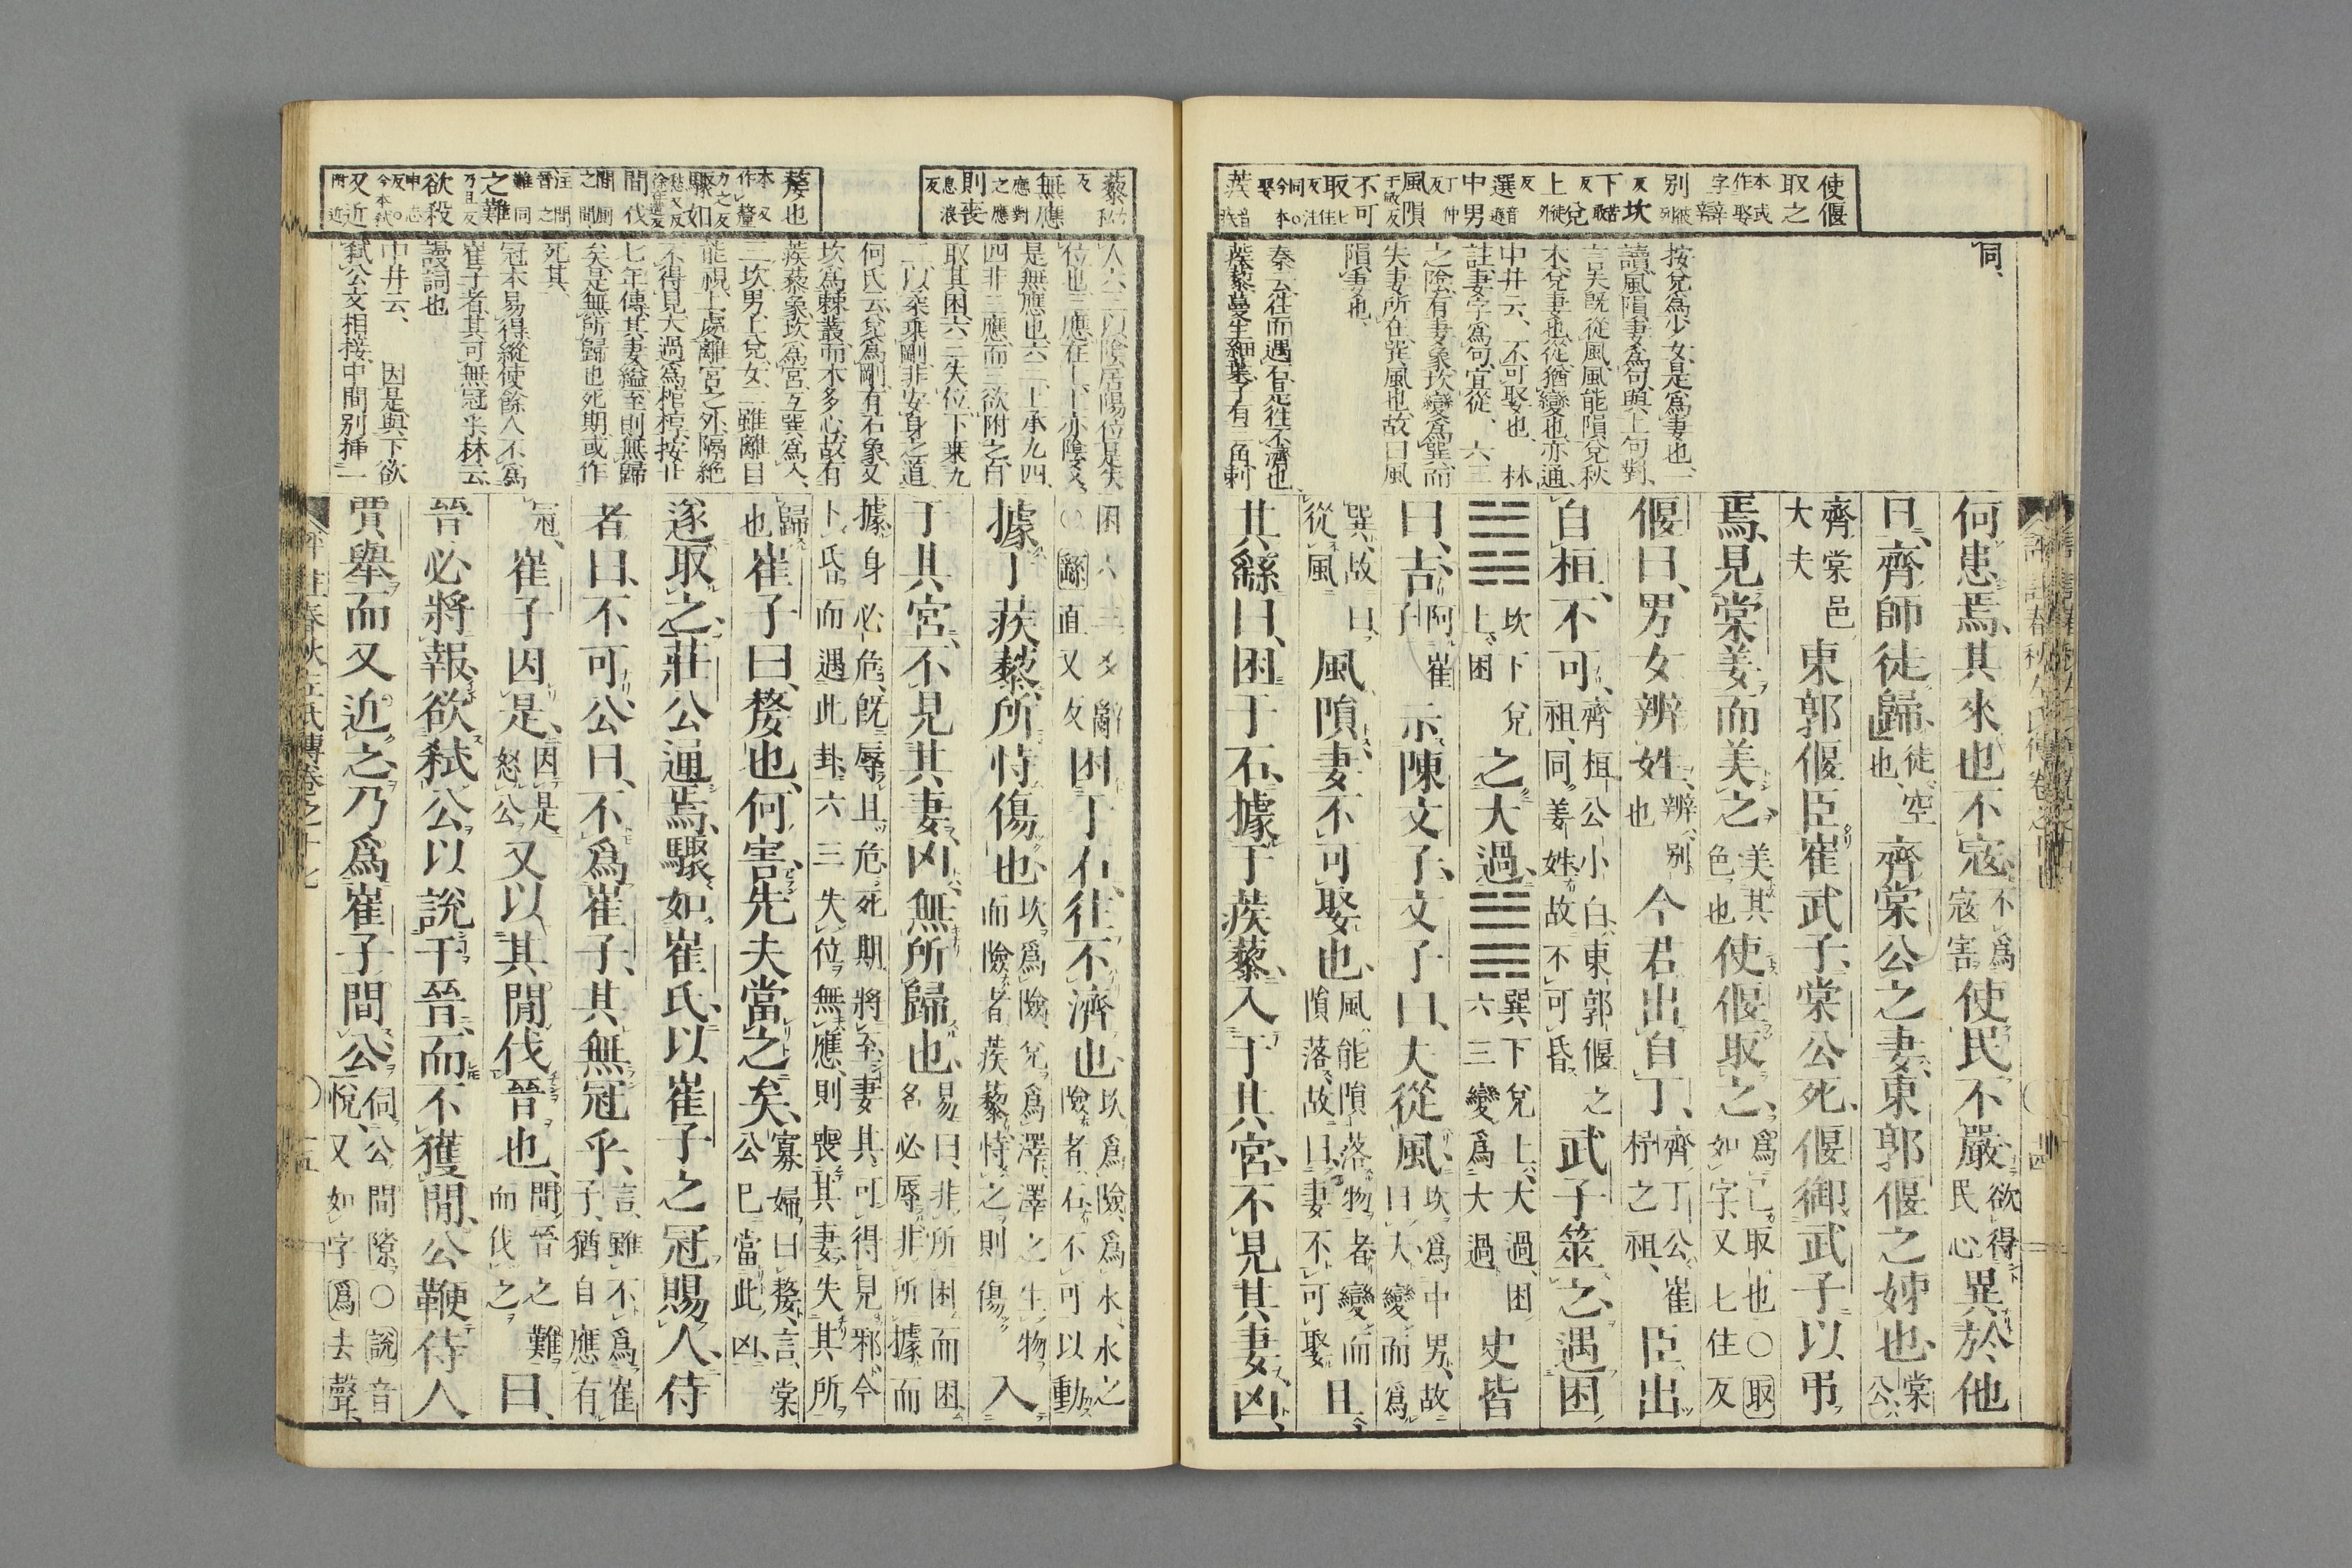 使偃
取之
本或
作娶
字辯
別彼
列反
坎
苦
下
取
反兌
徒
外
上
反
選
音
中男
丁仲
反
風隕
于敏
反
不可
取
七住
反注
同○
今本
娶
蒺
音
同
按兌爲少女是爲妻也一
讀風隕妻爲句與上句對
言夫既從風風能隕兌秋
木兌妻也從猶變也亦通
中井云不可娶也林
註妻字爲句宜從六三
之陰有妻象坎變爲巽而
失妻所在巽風也故曰風
隕妻也
秦云往而遇石是往不濟也
蒺藜蔓生細葉子有三角刺
何患焉其來也不寇不爲寇害使民不嚴欲得民心異於他
日齊師徒歸徒空也齊棠公之妻東郭偃之姊也棠公
齊棠邑大夫東郭偃臣崔武子棠公死偃御武子以弔
焉見棠姜而美之美其色也使偃取之爲己取也○取如字又七住反
偃曰男女辨姓辨別也今君出自丁齊丁公崔杼之祖臣出
自桓不可齊桓公小白東郭偃之祖同姜姓故不可昏武子筮之遇困
坎下兌上困之大過巽下兌上大過困六三變爲大過史皆
曰吉阿崔子示陳文子文子曰夫從風坎爲中男故曰夫變而爲
巽故曰從風風隕妻不可娶也風能隕落物者變而隕落故曰妻不可娶且
其繇曰困于石據于蒺藜入于其宮不見其妻凶
藜
無應
應對
之應
則喪
息浪
反
嫠也
本又
作釐
力之反
驟如
愁又反
間伐
間廁
之間
注間
晉之
難同
之難
乃旦反
欲殺
申志
反○
今本弒
又近
附近
人六三以陰居陽位是失
位也三應在上上亦陰爻
是無應也六三上承九四
四非三應而三欲附之自
取其困六三失位下乘九
二以柔乘剛非安身之道
何氏云兌爲剛有石象又
坎爲棘叢而木多心故有
蒺藜象坎爲宮互巽爲入
三坎男上兌女三雖離目
能視上處離宮之外隔絕
不得見大過爲棺椁按廿
七年傳其妻縊至則無歸
矣是無所歸也死期或作
死其
冠本易得縱使餘人不爲
崔子者其可無冠乎林云
謾詞也
中井云因是與下欲
弒公文相接中間別挿一
困六三爻辭○繇直又反困于石往不濟也坎爲險爲水水之險者石不可以動
據于蒺藜所恃傷也坎爲險兌爲澤澤之生物而險者蒺藜恃之則傷入
于其宮不見其妻凶無所歸也易曰非所困而困名必辱非所據而
據身必危既辱且危死期將至妻其可得見邪今卜昏而遇此卦六三失位無應則喪其妻失其所
歸也崔子曰嫠也何害先夫當之矣寡婦曰嫠言棠公已當此凶
遂取之莊公通焉驟如崔氏以崔子之冠賜人侍
者曰不可公曰不爲崔子其無冠乎言雖不爲崔子猶自應有
冠崔子因是因是怒公又以其間伐晉也間晉之難而伐之曰
晉必將報欲弒公以說于晉而不獲間公鞭侍人
賈舉而又近之乃爲崔子間公伺公間隙○說音悅又如字爲去聲